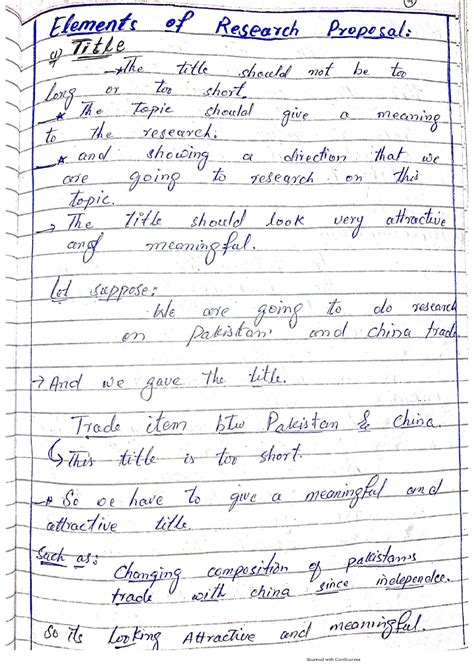 Elements of Research Proposal:
1) Title
→ the title should not be too
long or too short.
* The Topic should give a meaning
to the research.
* and showing a direction that we
are going to research on this
topic.
→ The Title should look very attractive
and meaningful.
Let suppose:
We are going to do research
on Pakistan and china trade
→ And we gave the title.
Trade item btw Pakistan & China.
This title is too short.
→ So we have to give a meaningful and
attractive title.
Such as:
Changing composition of pakistan's
trade with china since independee.
So its Looking Attractive and meaningful.
Scanned with CamScanner